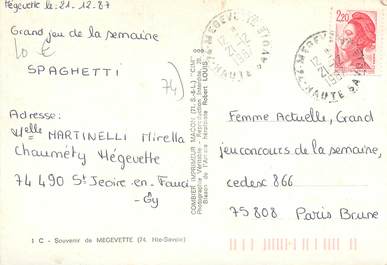 Mégevette le: 21-12-87
Grand jeu de la semaine
10 €
SPAGHETTI
74
Adresse:
Melle MARTINELLI Mirella
Chauméty Mégevette
74 490 St Jeoire en Fauci
-Gy
I C - Souvenir de MEGEVETTE (74 Hte-Savoie)
COMBIER IMPRIMEUR MACON (71. S.-&-L.) "CIM"
Photographie Véritable - Reproduction Interdite
Robert LOUIS
74 MEGEVETTE
21-12
HAUTE SAVOIE
74 MEGEVETTE
21-12
HAUTE SAVOIE
2,20
Femme Actuelle, Grand
jeu concours de la semaine,
cedesc 866
75808 Paris Brune